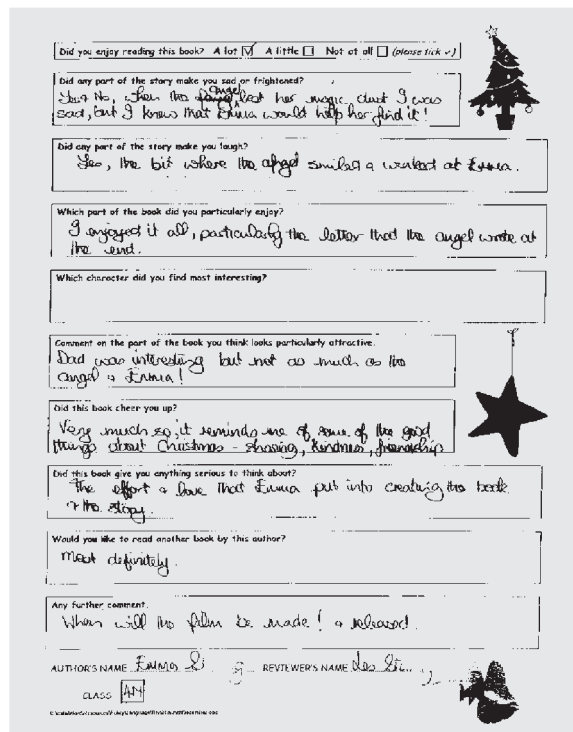 Did you enjoy reading this book? A lot ☑ A little ☐ Not at all ☐ (please tick ✓)
Did any part of the story make you sad or frightened?
No, when the angel lost her magic dust I was
sad, but I knew that Emma would help her find it!
Did any part of the story make you laugh?
Yes, the bit where the angel smiled & winked at Emma.
Which part of the book did you particularly enjoy?
I enjoyed it all, particularly the letter that the angel wrote at
the end.
Which character did you find most interesting?
Comment on the part of the book you think looks particularly attractive.
Dad was interesting but not as much as the
angel & Emma!
Did this book cheer you up?
Very much so, it reminds me of some of the good
things about Christmas - sharing, kindness, friendship
Did this book give you anything serious to think about?
The effort & love that Emma put into creating the book
& the story.
Would you like to read another book by this author?
Most definitely.
Any further comment.
When will the film be made! & released
AUTHOR'S NAME Emma S REVIEWER'S NAME Les
CLASS 4N